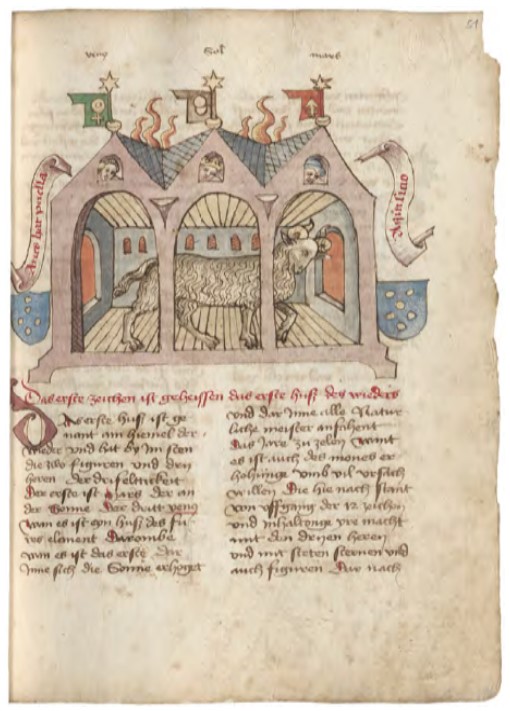 51
Sol
mars
puella
Das erste zeichen ist geheissen das erste huß des wieders
DAs erste huß ist ge
nant am hiemel der
wieder vnd hat by Im steen
die zwo figuren vnd dry
heren der drifeltickeit
Der erste ist Mars der an
der Sonne Der dritt venus
wan es ist eyn huß des fu
res element Darombe
wan es ist das erste Dar
Inne sich die Sonne erhoget
vnd dar Inne alle Natur
liche meister anfahent
das Jare zu zelen want
es ist auch des mones er
hohunge vmb vil vrsach
willen Die hie nach stant
von vffgang der 12 zeichen
vnd inhaltonge yre macht
mit den dryen heren
vnd mit steten sternen vnd
auch figuren Dar nach